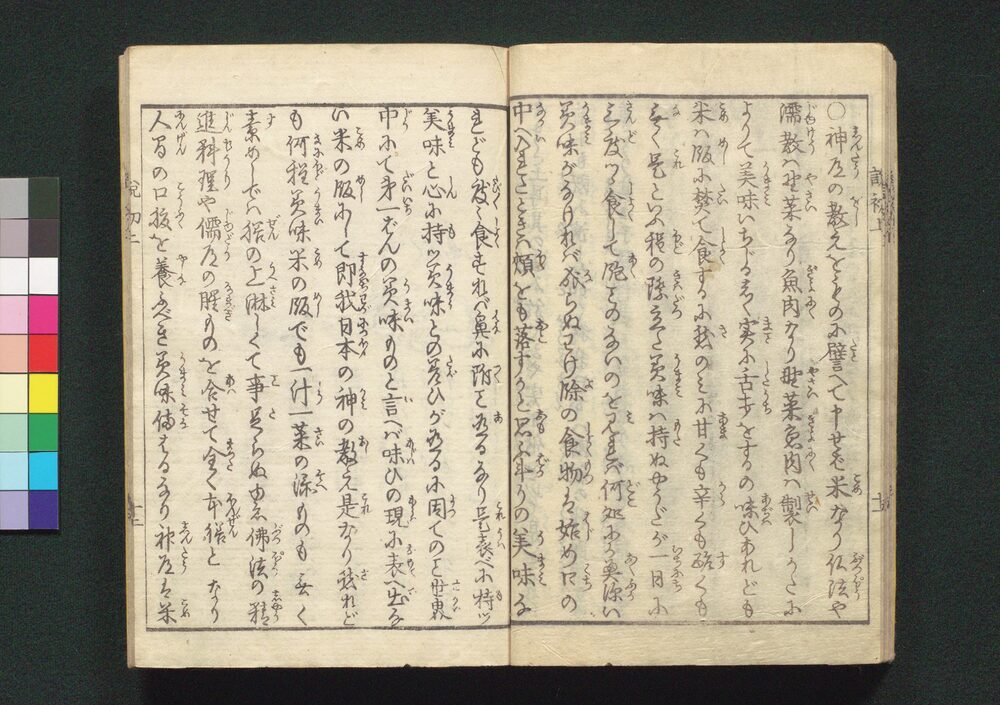 ○神道の教えをものに譬へて申せば米なり仏法や
儒教は野菜なり魚肉なり野菜魚肉は製しかたに
よりて美味いちじるしく実に舌鼓をするの味ひあれども
米は飯に焚て食するに我のミに甘くも辛くも酸くも
無く是といふ程の際立た美味は持ぬやうだが一日に
三度づゝ食して飽ことのないのを見れば何処にか奥深い
美味がなければならぬわけ除の食物は始め口の
中へ入たときは頬をも落すかと思ふ斗りの美味な
れども度々食すれば鼻に附て為るなり是表べに持ツ
美味と心に持ツ美味との差ひが為るに因てのこと世界
中にて第一ばんの美味ものと言へば味ひの現に表へ出な
い米の飯にして即我日本の神の教え是なり然れど
も何程美味米の飯でも一汁一菜の添ものも無く
素めしでは膳の上淋しくて事足らぬゆゑ佛法の精
進料理や儒道の腥ものを合せて全く本膳となり
人間の口腹を養ふべき美味備はるなり神道は米